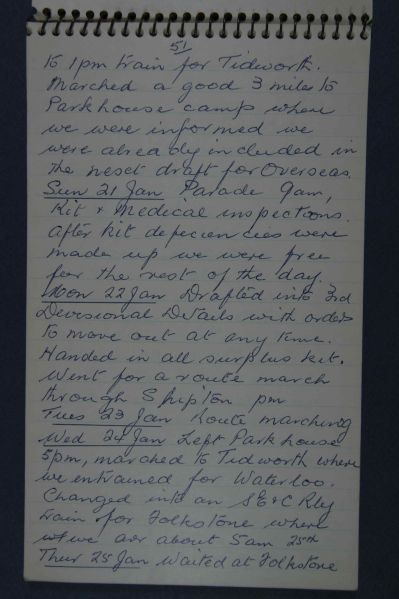 51
to 1pm train for Tidworth.
Marched a good 3 miles to
Parkhouse camp where
we were informed we
were already included in
the next draft for Overseas.
Sun 21 Jan Parade 9am,
Kit & Medical inspections.
after kit deficiencies were
made up we were free
for the rest of the day.
Mon 22 Jan Drafted into 3rd
Divisional Details with orders
to move out at any time.
Handed in all surplus kit.
Went for a route march
through Shipton pm
Tues 23 Jan Route marching
Wed 24 Jan Left Parkhouse
5pm, marched to Tidworth where
we entrained for Waterloo.
Changed into an SE&C Rly
train for Folkstone where
we arr about 5am 25th
Thur 25 Jan Waited at Folkstone